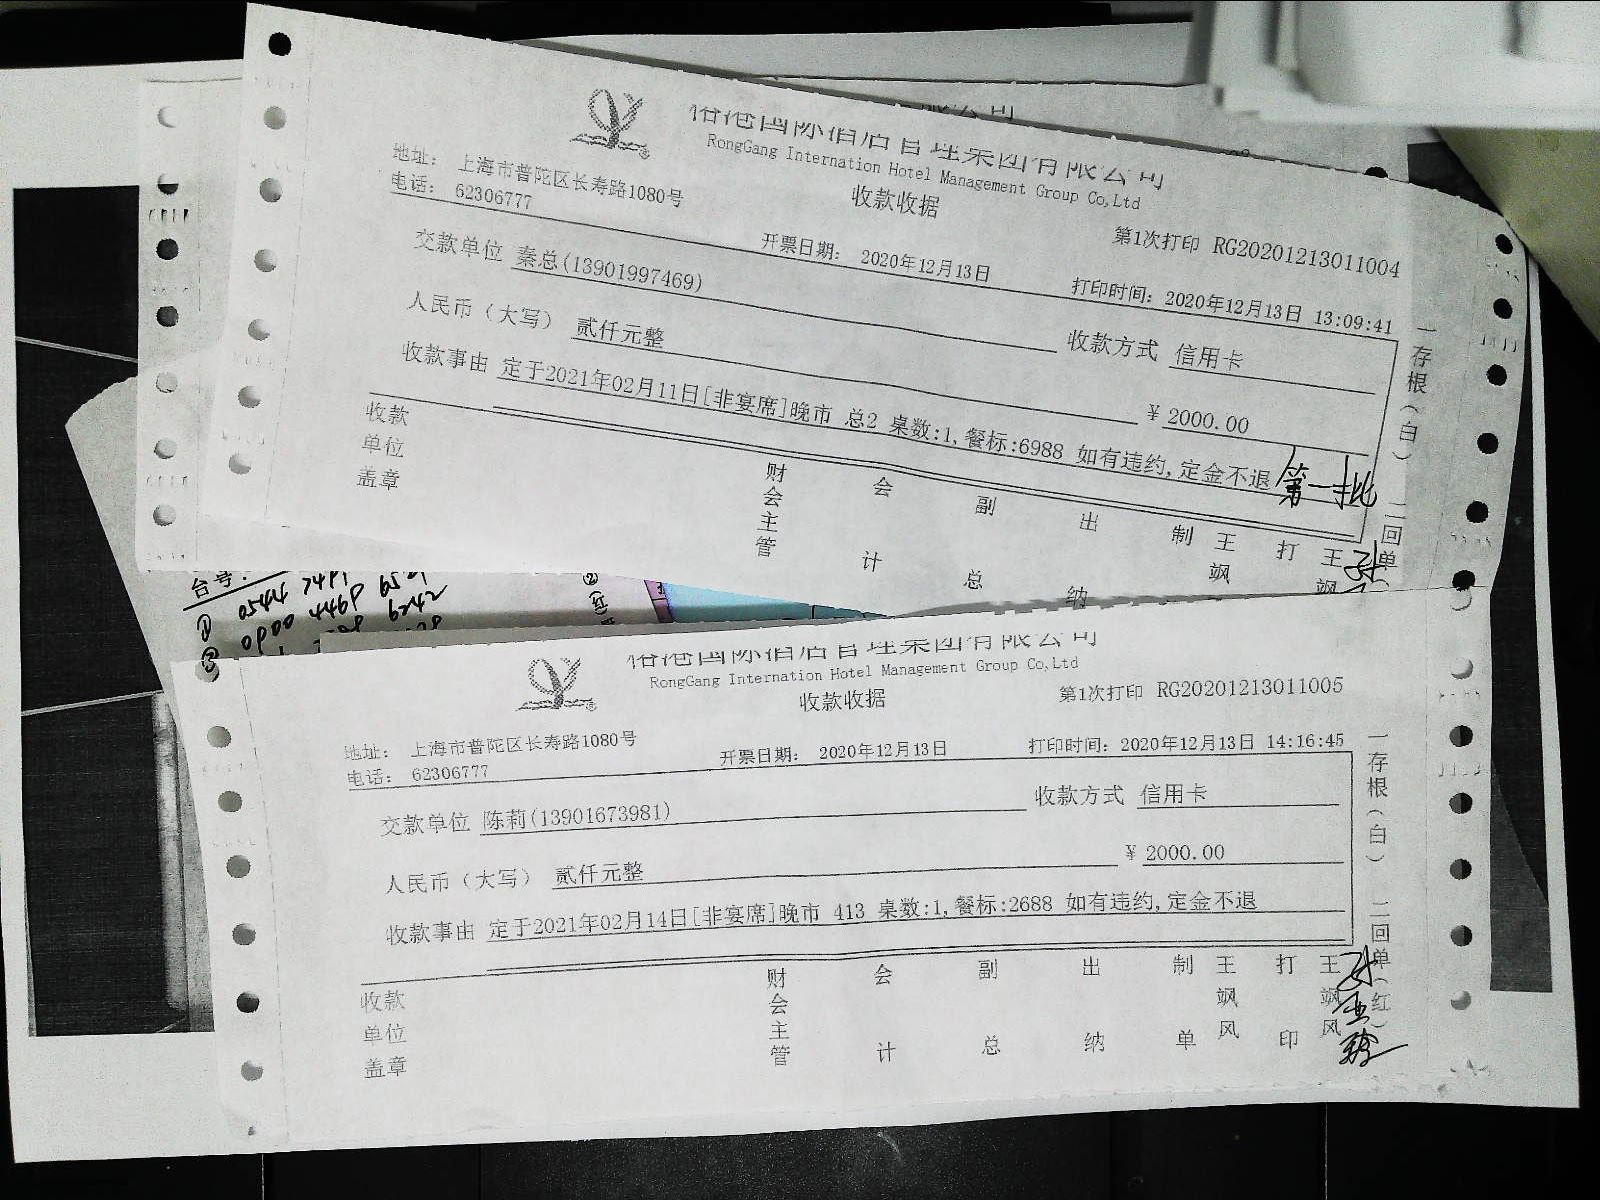 限公司
国际酒店管理集团有限公司
RongGang Internation Hotel Management Group Co,Ltd
收款收据
地址： 上海市普陀区长寿路1080号
电话： 62306777
开票日期： 2020年12月13日
第1次打印 RG20201213011004
打印时间：2020年12月13日 13:09:41
交款单位 秦总(13901997469)
收款方式 信用卡
人民币（大写） 贰仟元整
￥2000.00
收款事由 定于2021年02月11日[非宴席]晚市 总2 桌数:1,餐标:6988 如有违约,定金不退
第一批
收款单位盖章
财会主管 会计 副总 出纳 制 王飒 打 王飒
一存根（白） 二回单
台号:
① 0544 7491
0900 4469
6242
国际酒店管理集团有限公司
RongGang Internation Hotel Management Group Co,Ltd
收款收据
第1次打印 RG20201213011005
地址： 上海市普陀区长寿路1080号
电话： 62306777
开票日期： 2020年12月13日
打印时间：2020年12月13日 14:16:45
交款单位 陈莉(13901673981)
收款方式 信用卡
人民币（大写） 贰仟元整
￥2000.00
收款事由 定于2021年02月14日[非宴席]晚市 413 桌数:1,餐标:2688 如有违约,定金不退
收款单位盖章
财会主管 会计 副总 出纳 制单 王飒风 打印 王飒风
一存根（白） 二回单（红）